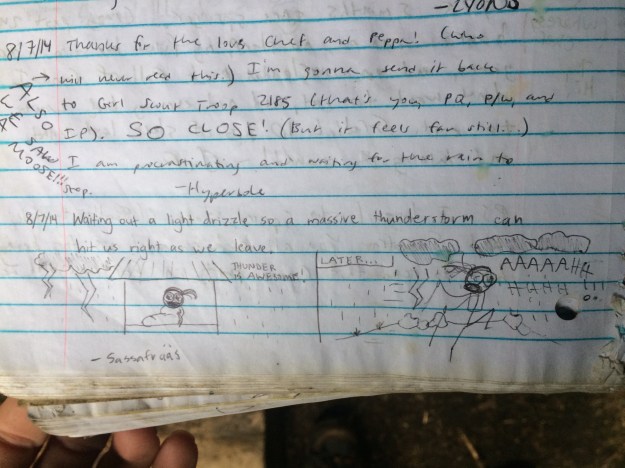 - LYONS
8/7/14 Thanks for the love Chef and Peppa! (who
→ will never read this.) I'm gonna send it back
to Girl Scout Troop 2185 (that's you, PQ, P/W, and
IP). SO CLOSE! (But it feels far still...)
I am procrastinating and waiting for the rain to
stop. - Hyperbole
ALSO
SAW
MOOSE!!!
8/7/14 Waiting out a light drizzle so a massive thunderstorm can
hit us right as we leave.
THUNDER
IS AWESOME!
LATER...
AAAAAHH
HHHH!!!
- Sassafrääs